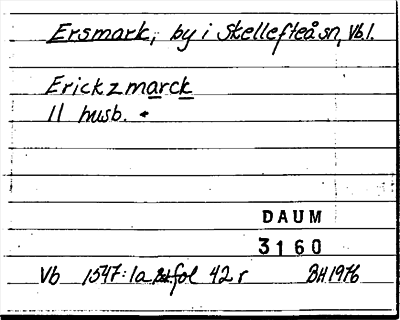 Ersmark, by i Skellefteå sn, Vbl.
Erickzmarck
11 husb.
DAUM
3160
Vb 1547:1a fol 42 r BH.1976